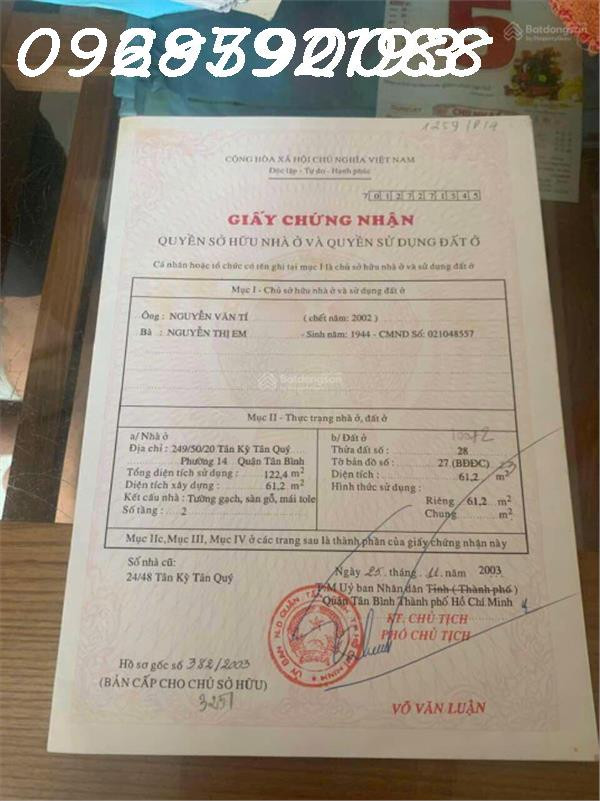 Batdongsan
by PropertyGuru
5
CỘNG HÒA XÃ HỘI CHỦ NGHĨA VIỆT NAM
Độc lập - Tự do - Hạnh phúc
7 0 1 2 7 2 7 1 3 4 5
GIẤY CHỨNG NHẬN
QUYỀN SỞ HỮU NHÀ Ở VÀ QUYỀN SỬ DỤNG ĐẤT Ở
Cá nhân hoặc tổ chức có tên ghi tại mục I là chủ sở hữu nhà ở và sử dụng đất ở
Mục I - Chủ sở hữu nhà ở và sử dụng đất ở
Ông : NGUYỄN VĂN TÍ ( chết năm: 2002 )
Bà : NGUYỄN THỊ EM - Sinh năm: 1944 - CMND Số: 021048557
Batdongsan
by PropertyGuru
Mục II - Thực trạng nhà ở, đất ở
a/ Nhà ở
Địa chỉ : 249/50/20 Tân Kỳ Tân Quý
Phường 14 Quận Tân Bình
Tổng diện tích sử dụng : 122,4 m2
Diện tích xây dựng : 61,2 m2
Kết cấu nhà : Tường gạch, sàn gỗ, mái tole
Số tầng : 2
b/ Đất ở
Thửa đất số : 28
Tờ bản đồ số : 27 (BĐĐC)
Diện tích : 61,2 m2
Hình thức sử dụng :
Riêng : 61,2 m2
Chung : m2
Mục IIc, Mục III, Mục IV ở các trang sau là thành phần của giấy chứng nhận này
Số nhà cũ:
24/48 Tân Kỳ Tân Quý
Ngày 25 tháng 11 năm 2003
T.M Uỷ ban Nhân dân Tỉnh ( Thành phố )
Quận Tân Bình Thành phố Hồ Chí Minh
KT. CHỦ TỊCH
PHÓ CHỦ TỊCH
Hồ sơ gốc số 382/2003
(BẢN CẤP CHO CHỦ SỞ HỮU)
3251
VÕ VĂN LUẬN